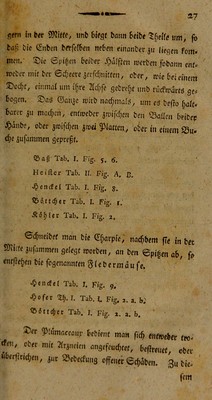 27
gern in der Mitte, und biegt dann beide Theile um, so
daß die Enden derselben neben einander zu liegen kom-
men. Die Spitzen beider Hälften werden sodann ent-
weder mit der Scheere zerschnitten, oder, wie bei einem
Docht, einmal um ihre Achse gedreht und rückwärts ge-
bogen. Das Ganze wird nochmals, um es desto halt-
barer zu machen, entweder zwischen den Ballen beider
Hände, oder zwischen zwei Platten, oder in einem Bu-
che zusammen gepreßt.
Baß Tab. I. Fig. 5. 6.
Heister Tab. II. Fig. A. B.
Henckel Tab. I. Fig. 8.
Böttcher Tab. I. Fig. 1.
Köhler Tab. I. Fig. 2.
Schneidet man die Charpie, nachdem sie in der
Mitte zusammen gelegt worden, an den Spitzen ab, so
entstehen die sogenannten Fledermäuse.
Henckel Tab. I. Fig. 9.
Hofer Th. I. Tab. I, Fig. 2. a. b.
Böttcher Tab. I. Fig. 2. a. b.
Der Plümaceaux bedient man sich entweder tro-
cken, oder mit Arzneien angefeuchtet, bestreuet, oder
überstrichen, zur Bedeckung offener Schäden. Zu die-
sem